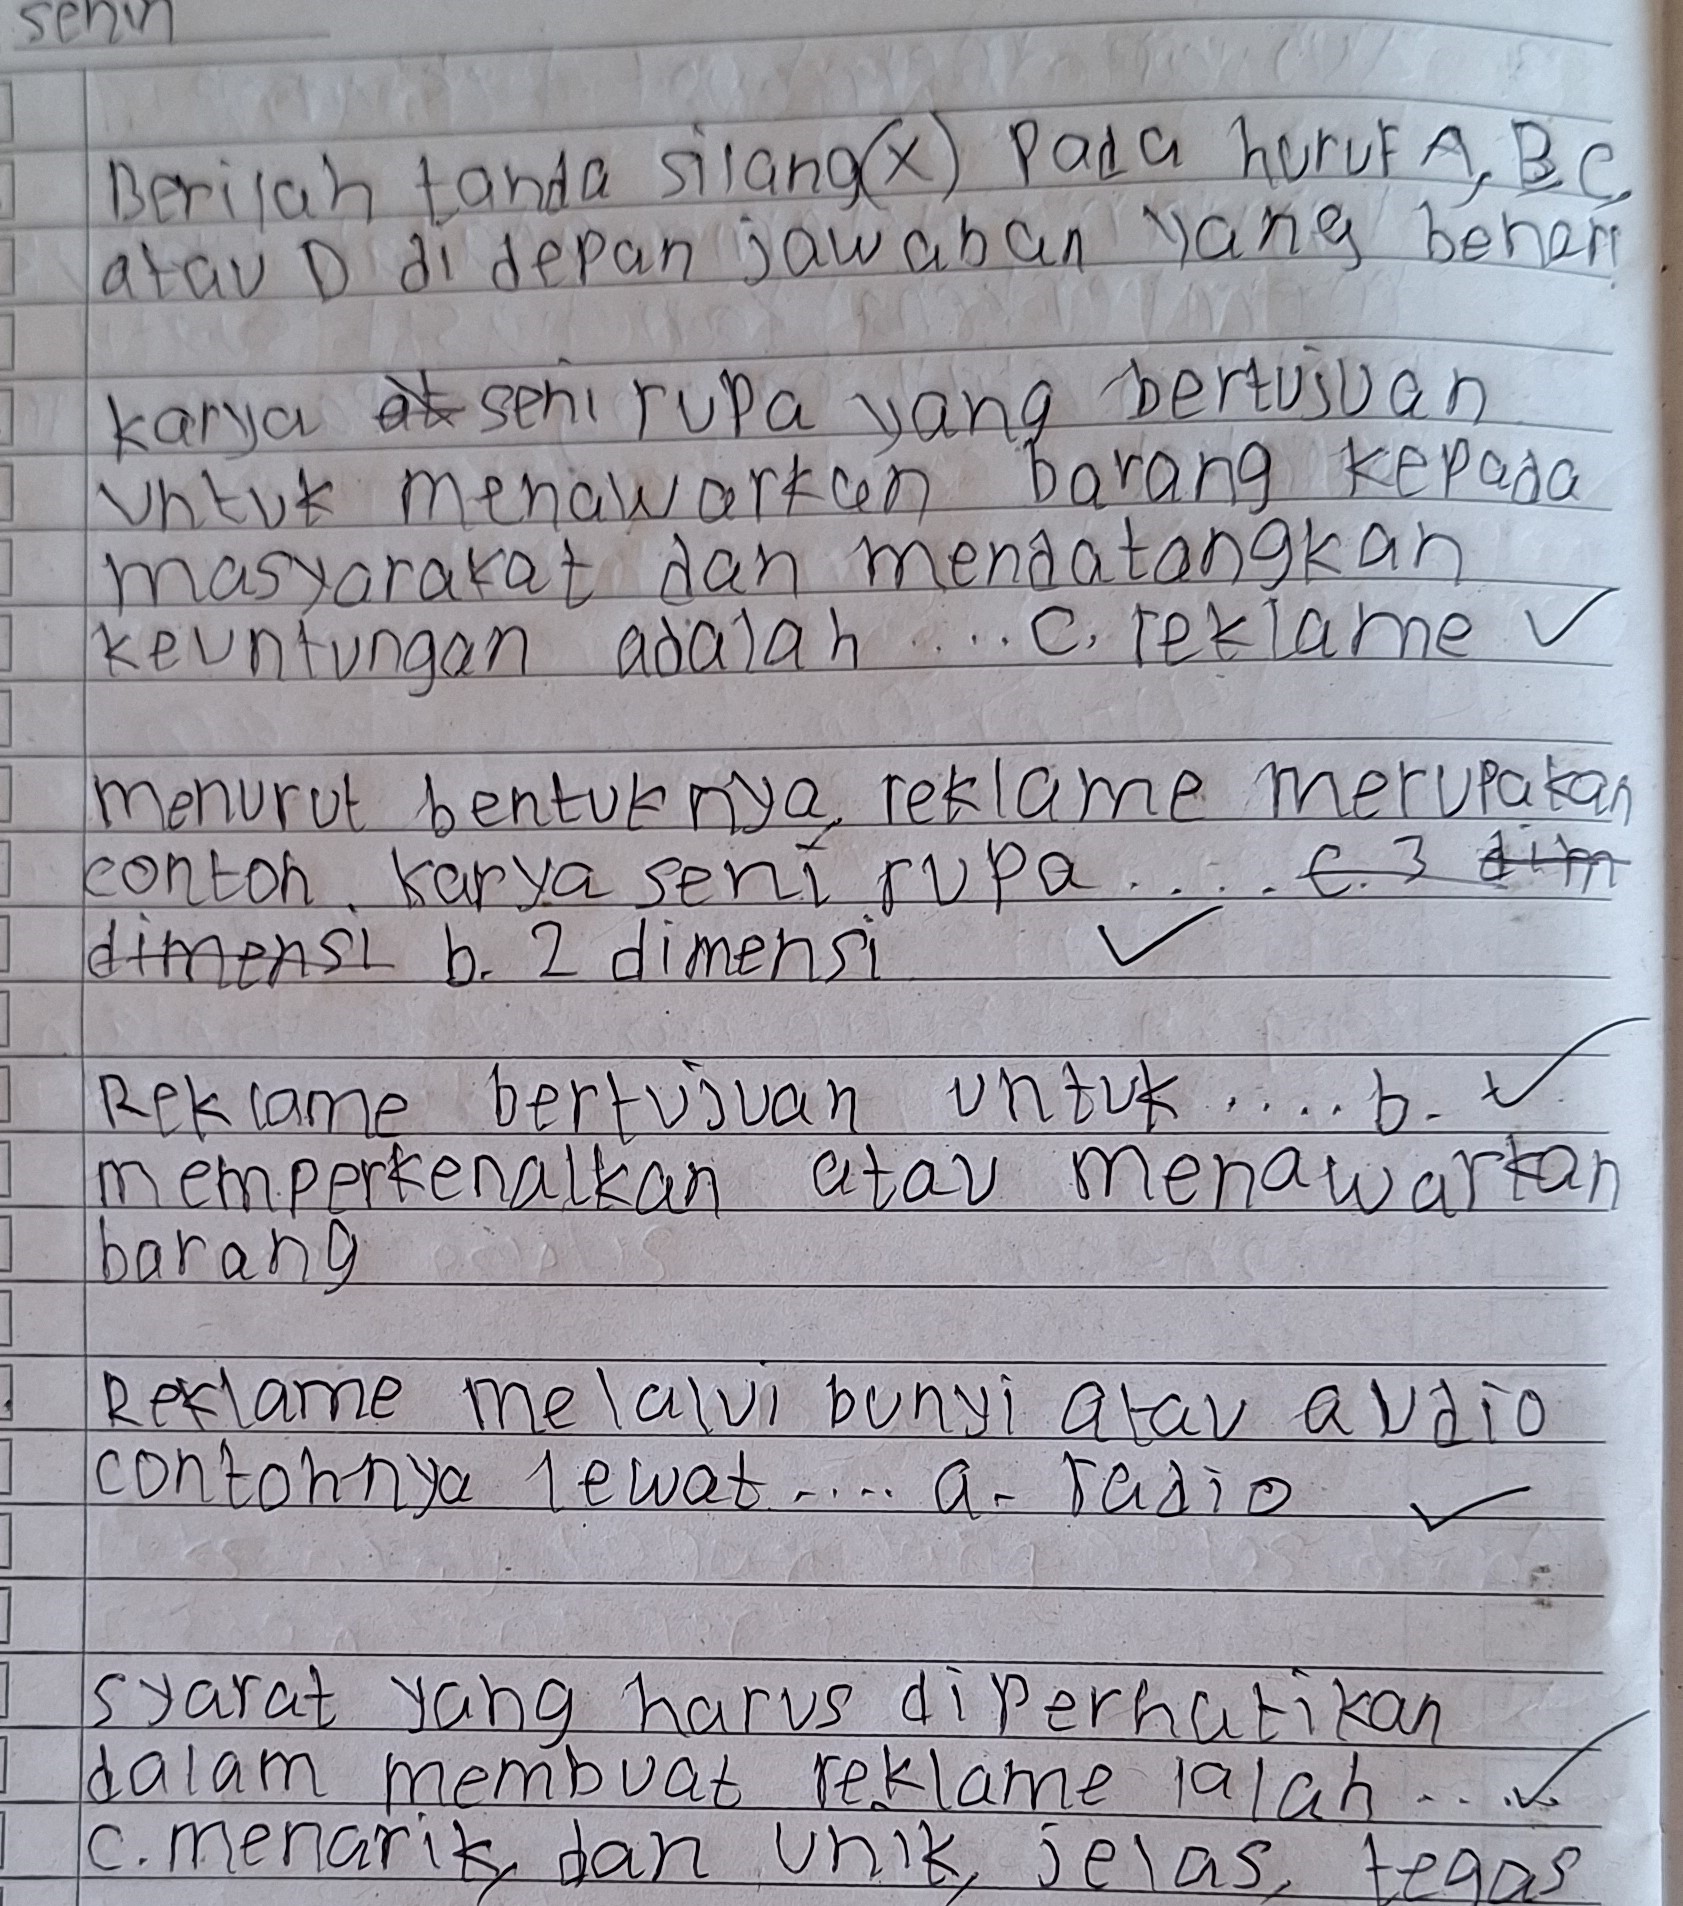 senin
Berilah tanda silang(x) Pada huruf A, B C,
atau D di depan jawaban yang benar!
karya at seni rupa yang bertujuan
untuk menawarkan barang kepada
masyarakat dan mendatangkan
keuntungan adalah .... c. reklame ✓
menurut bentuknya, reklame merupakan
contoh karya seni rupa ..... c. 3 dim
dimensi b. 2 dimensi ✓
Reklame bertujuan untuk .... b. ✓
memperkenalkan atau menawarkan
barang
Reklame melalui bunyi atau audio
contohnya lewat .... a. radio ✓
syarat yang harus diperhatikan
dalam membuat reklame ialah ... ✓
c. menarik, dan unik, jelas, tegas